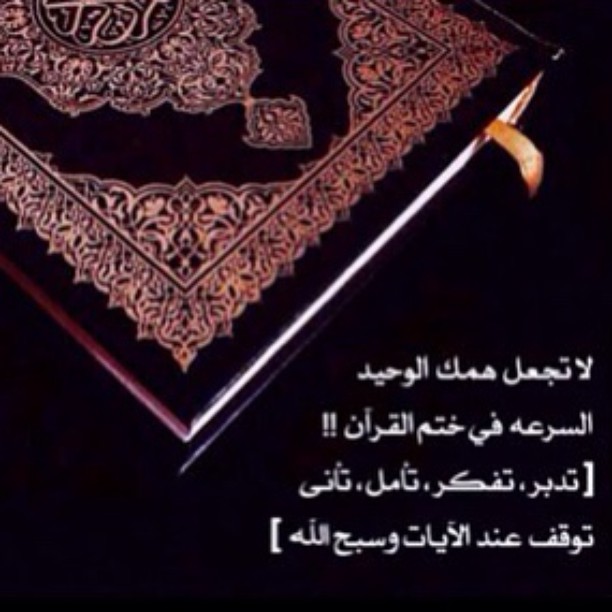 لا تجعل همك الوحيد
السرعه في ختم القرآن !!
[ تدبر، تفكر، تأمل، تأنى
توقف عند الآيات وسبح الله ]